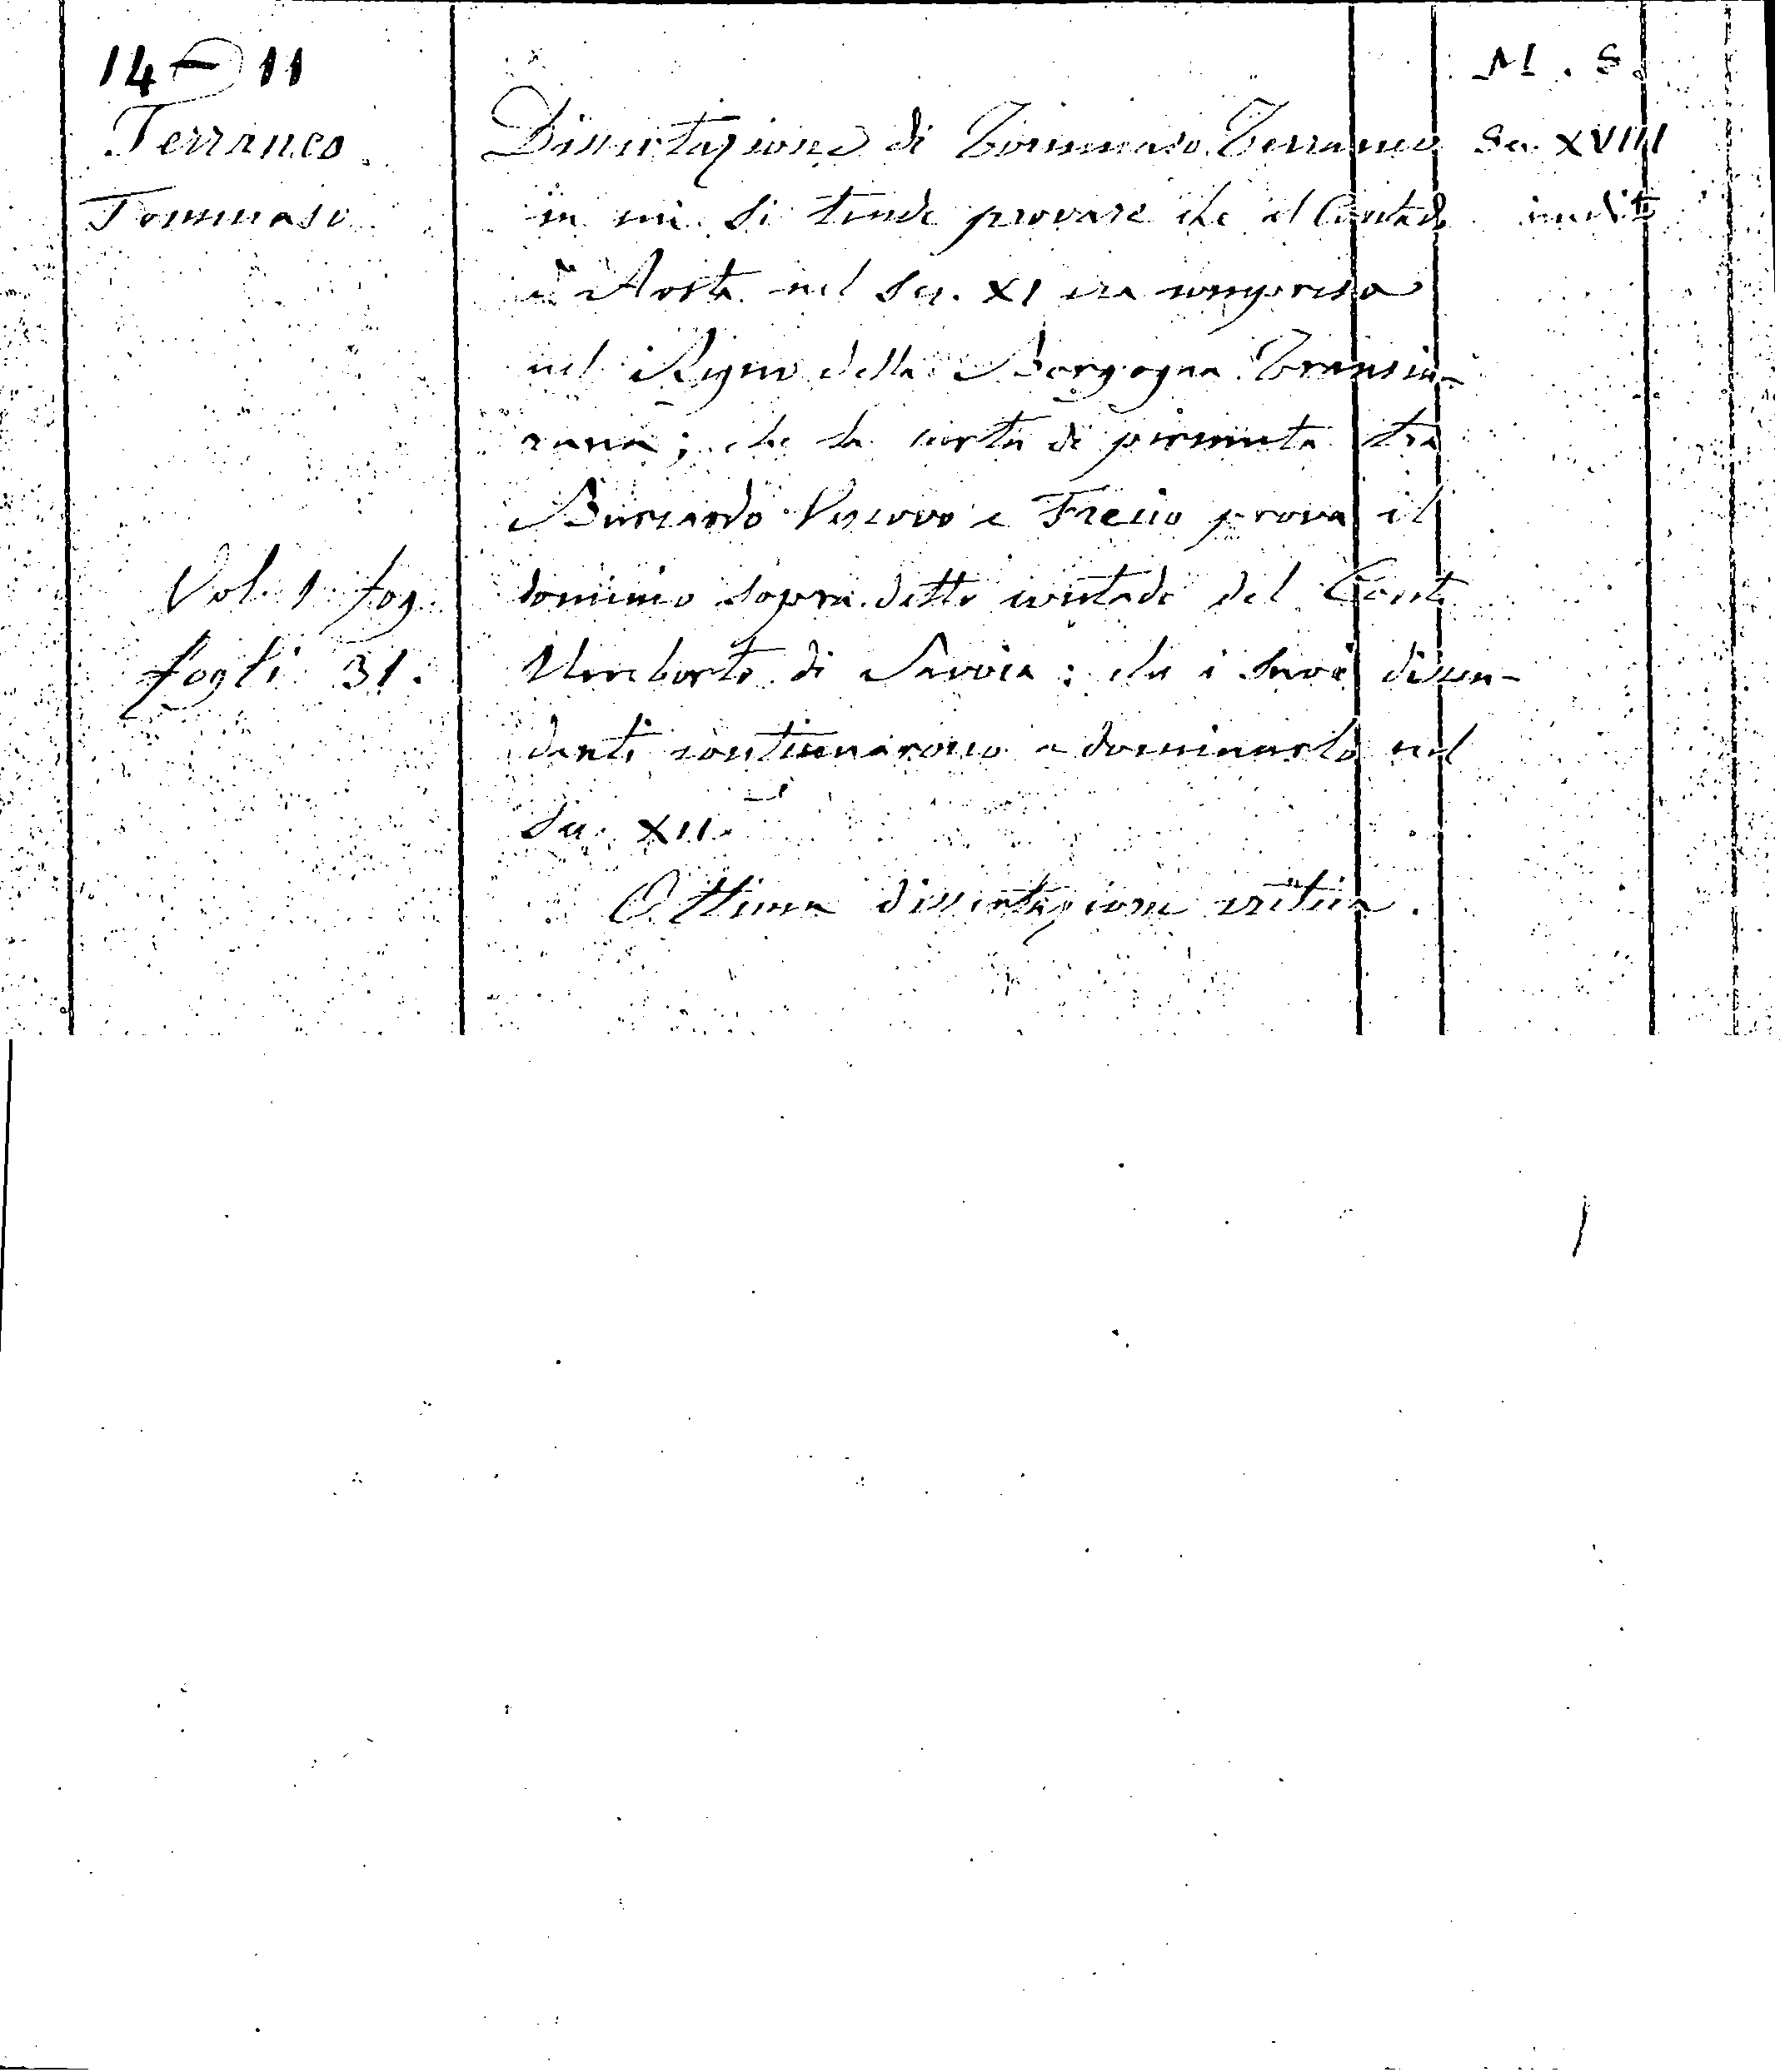 14 - 11
Terraneo
Tommaso
Vol. 1 fog.
fogli 31.
Dissertazione di Tommaso Terraneo
in cui si tende provare che il Contado
d'Aosta nel Sec. XI era compreso
nel Regno della Borgogna Transiu-
rana; che la carta di permuta tra
Burcardo Vescovo e Frecio prova il
dominio sopra detto contado del Conte
Umberto di Savoia; che i suoi discen-
denti continuarono a dominarlo nel
Sec. XII.
Ottima dissertazione critica.
M. S.
Sec. XVIII
inedito